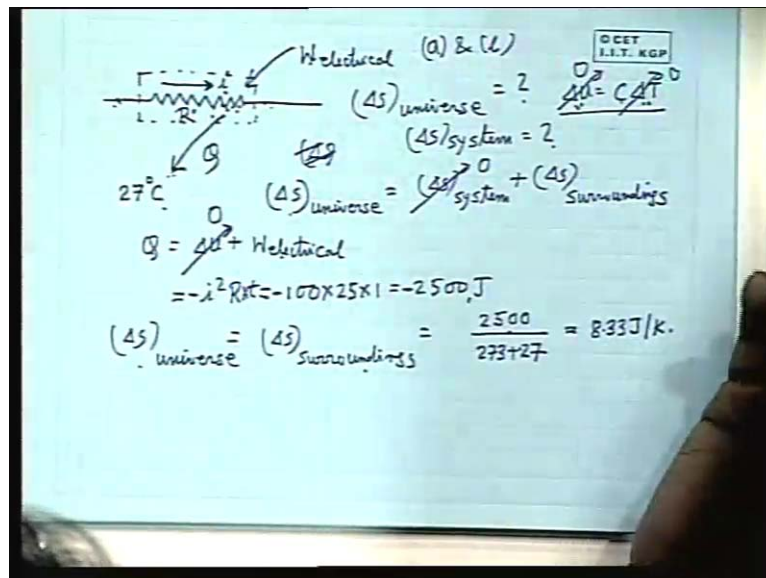 W electrical (a) & (b)
© CET
I.I.T. KGP
i
R
Q
27°C
(Δs)universe = ? ΔU = CΔT 0 0
(Δs)system = ?
(Δs)universe = (Δs)system 0 + (Δs)surroundings
Q = ΔU 0 + Welectrical
= -i²Rxt = -100×25×1 = -2500, J
(Δs)universe = (Δs)surroundings = 2500 / 273+27 = 8.33 J/K.